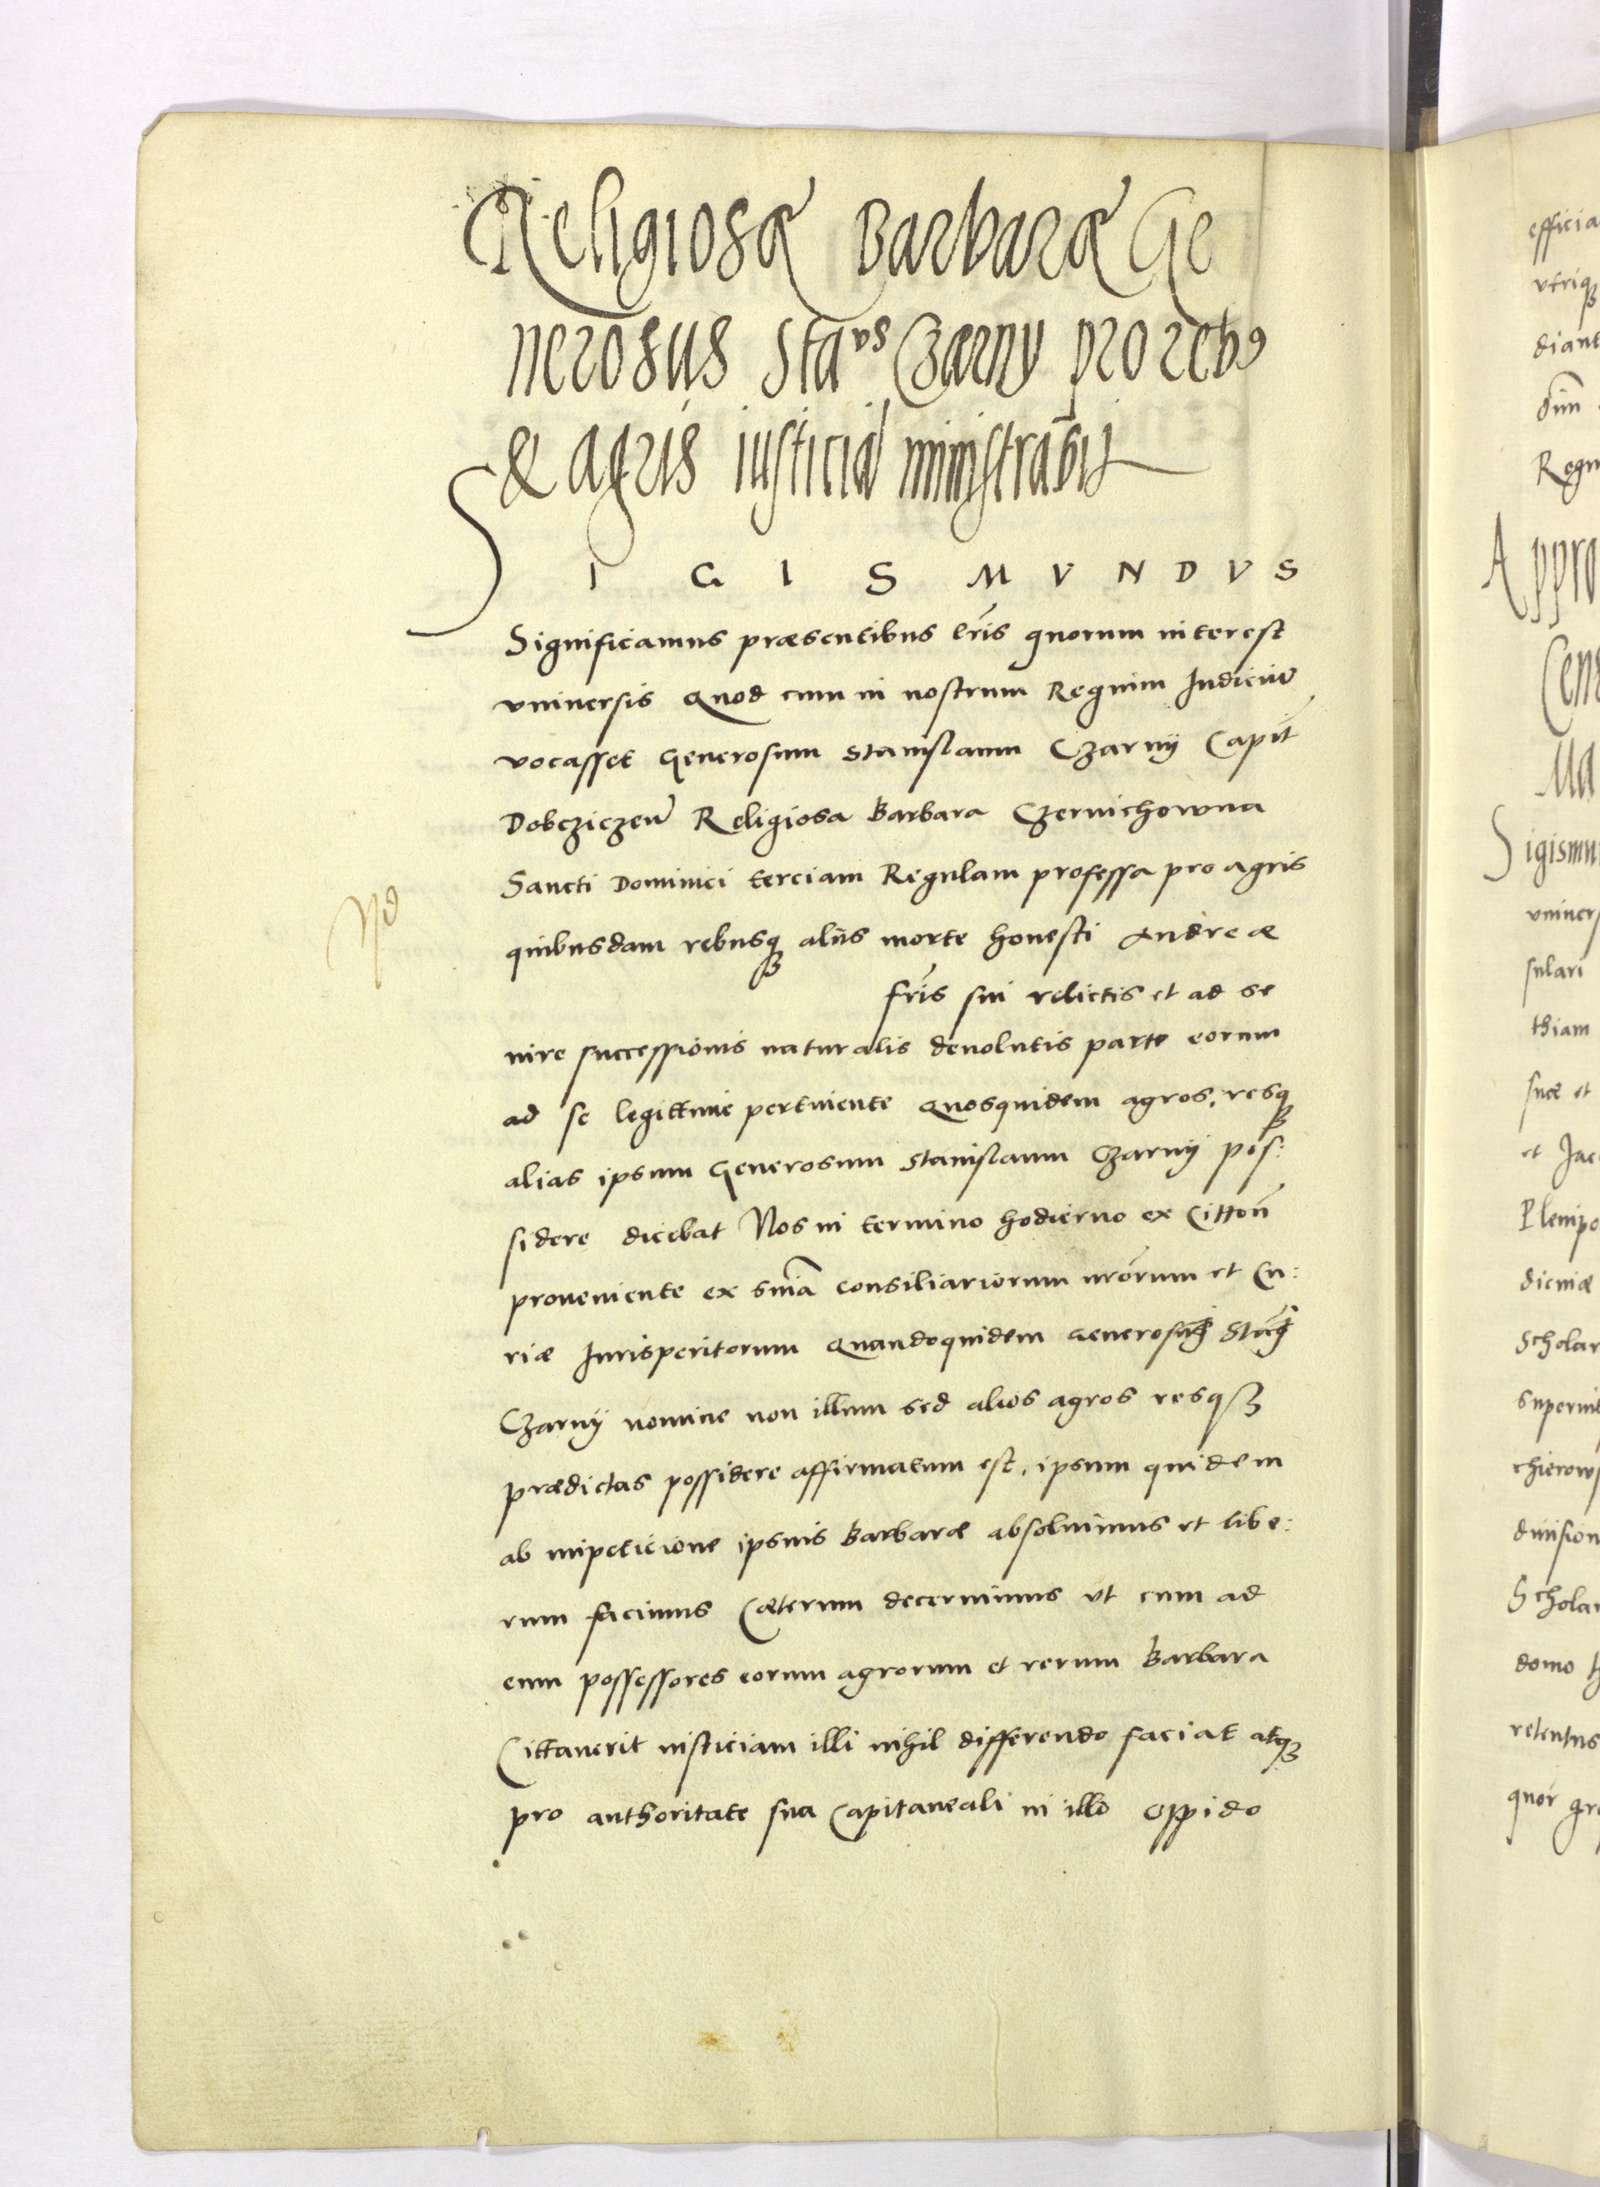 Religiosæ Barbaræ Ge
nerosus Sta⁹ˢ Czarny pro reb⁹
& agris iusticiā ministrabit
SIGISMVNDVS
Significamus præsentibus lr̃is quorum interest
vniversis Quod cum in nostrum Regium Iudiciū
vocasset Generosum Stanislaum Czarnÿ Capit̃
Dobcziczeñ Religiosa Barbara Czernichowna
Sancti Dominici terciam Regulam professa pro agris
quibusdam rebusqꝫ aliis morte honesti Andreæ
fr̃is sui relictis et ad se
iure successionis naturalis devolutis parte eorum
ad se legittime pertinente Quosquidem agros, resqꝫ
alias ipsum Generosum Stanislaum Czarnÿ pos:
sidere dicebat Nos in termino hodierno ex Cittoñ
proveniente ex sñia consiliariorum nr̃orum et Cu:
riæ Iurisperitorum Quandoquidem Generosi
Czarnÿ nomine non illum sed alios agros resqꝫ
prædictas possidere affirmatum est, ipsum quidem
ab impeticione ipsius Barbaræ absoluimus et libe:
rum facimus Cæterum decernimus vt cum ad
eum possessores eorum agrorum et rerum Barbara
Cittauerit iusticiam illi nihil differendo faciat atqꝫ
pro authoritate sua Capitaneali in illo oppido
No
efficia
vtriqꝫ
diant
dñm
Regn
Appro
Cens
Ma
Sigismu
vniuers
sulari
thiam
suæ et
et Jac
Plenipo
diciniæ
Scholar
superint
chierows
diuision
Scholar
domo h
retentus
quor gr